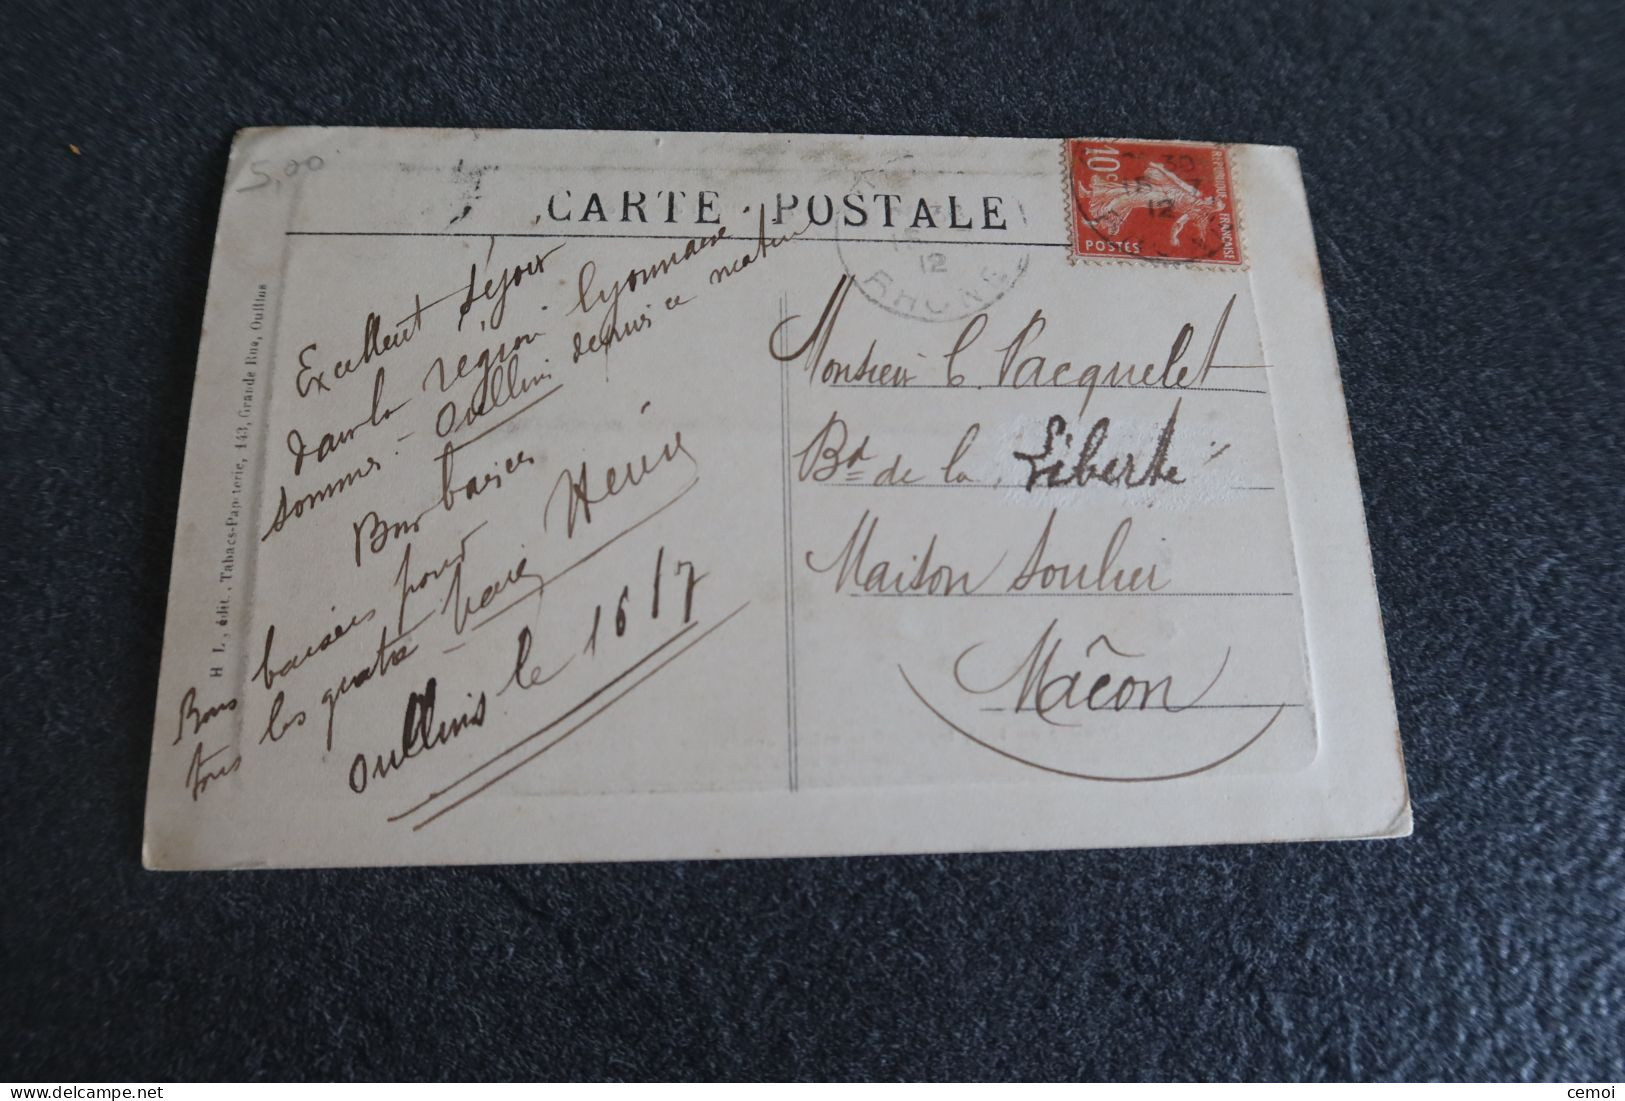 5,00
CARTE POSTALE
10c
POSTES
REPUBLIQUE FRANÇAISE
12
RHONE
12
H L, édit., Tabacs-Papeterie, 143, Grande Rue, Oullins
Excellent séjour
dans la region lyonnaise
sommes - Oullins depuis ce matin
Bons baisers
Bons baisers pour
tous les quatre -
Oullins le 16/7
Monsieur C. Pacquelet
Bd de la Liberté
Maison Soulier
Mâcon
cemoi